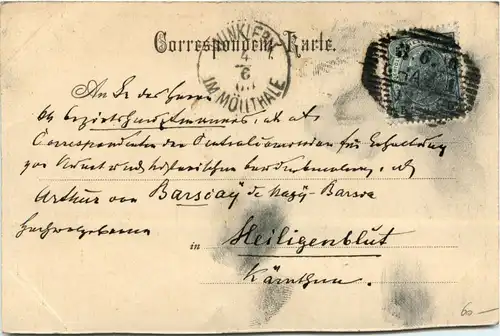 Correspondenz-Karte.
WINKLERN
4
6
IM MÖLLTHALE
An Se des Herrn
k k Bezirkshauptmannes, als als
Correspondenten der Centralcommission für Erhaltung
von Kunst und historischen Baudenkmalen, etc
Arthur von Barsçay de Nagy-Barsca
Hochwolgeboren
in Heiligenblut
Kärnthen.
60